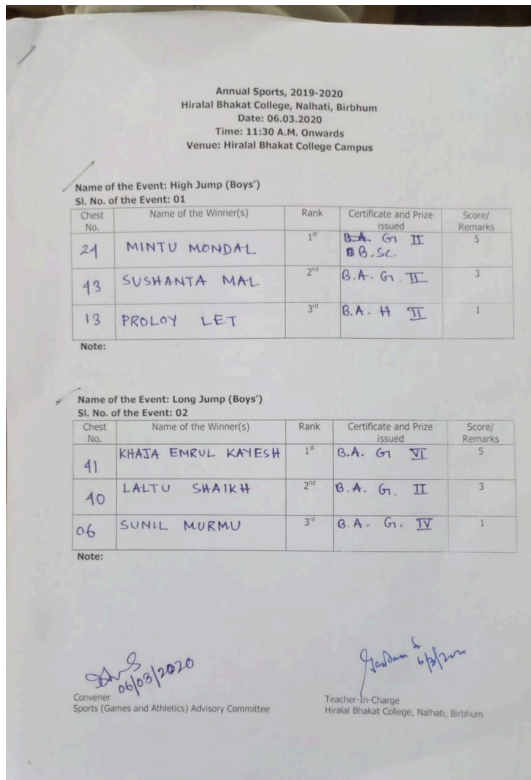 Annual Sports, 2019-2020
Hiralal Bhakat College, Nalhati, Birbhum
Date: 06.03.2020
Time: 11:30 A.M. Onwards
Venue: Hiralal Bhakat College Campus
Name of the Event: High Jump (Boys')
Sl. No. of the Event: 01
Chest No. Name of the Winner(s) Rank Certificate and Prize issued Score/ Remarks
21 MINTU MONDAL 1st B.A. G II B.Sc. 5
43 SUSHANTA MAL 2nd B.A. G. II 3
13 PROLOY LET 3rd B.A. H II 1
Note:
Name of the Event: Long Jump (Boys')
Sl. No. of the Event: 02
Chest No. Name of the Winner(s) Rank Certificate and Prize issued Score/ Remarks
41 KHAJA EMRUL KAYESH 1st B.A. G VI 5
40 LALTU SHAIKH 2nd B.A. G. II 3
06 SUNIL MURMU 3rd B.A. G. IV 1
Note:
06/03/2020
Convener
Sports (Games and Athletics) Advisory Committee
Teacher-In-Charge
Hiralal Bhakat College, Nalhati, Birbhum